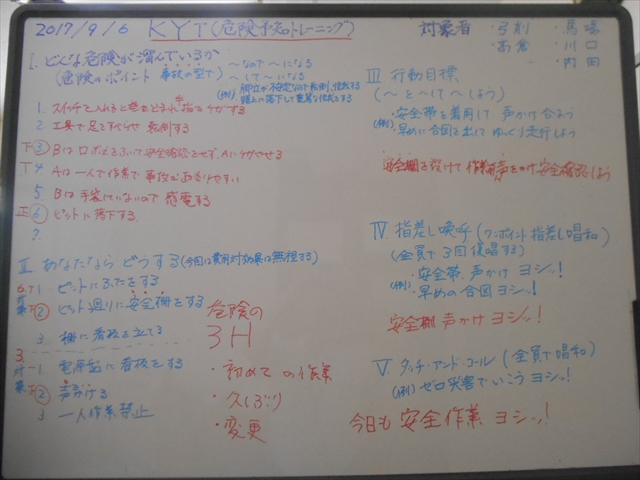 2017/9/6 KYT(危険予知トレーニング)
対象者 ・弓削 ・馬場
・高倉 ・川口
・内田
I. どんな危険が潜んでいるか
(危険のポイント 事故の型で) 〜なので 〜になる
〜して 〜になる
(例) 脚立が不安定なので転倒、
踏上に落下して
1. スイッチを入れると 指をケガする
2 工具で足をすべらせ 転倒する
3 Bは 安全確認をせず、Aにケガさせる
4 Aは一人で作業で 事故が
5. Bは手袋にいないので 感電する
6 ピットに落下する
7.
II あなたなら どうする(今回は費用対効果は無視する)
6.対策
1 ピットにふたをする
2 ピット廻りに安全柵をする
3. 柵に看板を立てる
3.対策
1 電源盤に看板をする
2 声かける
3 一人作業禁止
危険の
3H
・初めての作業
・久しぶり
・変更
III 行動目標
(〜と 〜して 〜しよう)
(例)
・安全帯を着用して 声かけ合おう
・早めに合図を出して ゆっくり走行しよう
安全柵を設けて 作業前声をかけ安全確認しよう
IV. 指差し喚呼(ワンポイント指差し唱和)
(全員で3回復唱する)
(例)
・安全帯、声かけ ヨシッ!
・早めの合図 ヨシッ!
安全柵 声かけ ヨシッ!
V. タッチ・アンド・コール (全員で唱和)
(例) ゼロ災害でいこう ヨシッ!
今日も 安全作業 ヨシッ!